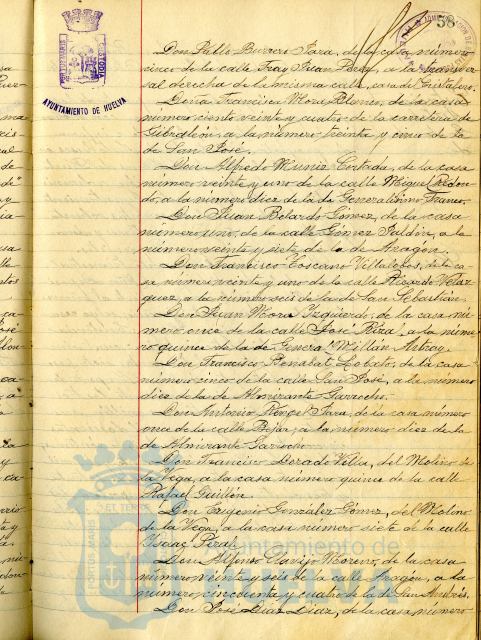 58
PORTUS MARIS ET TERRAE CUSTODIA
AYUNTAMIENTO DE HUELVA
Don Pablo Borrero Jara, de la casa número
cinco de la calle Fray Juan Perez, a la transver-
sal derecha de la misma calle, casa de Cristalero.
Doña Francisca Mora Blanco, de la casa
número ciento veinte y cuatro de la carretera de
Gibraleón, a la número treinta y cinco de la
de San José.
Don Alfredo Muniz Cortada, de la casa
número veinte y uno de la calle Miguel Redon-
do, a la número diez de la de Generalísimo Franco.
Don Juan Belardo Gómez, de la casa
número uno, de la calle Gómez Jaldón, a la
número veinte y siete de la de Aragón.
Don Francisco Toscano Villalobos, de la ca-
sa número veinte y uno de la calle Ricardo Velaz-
quez, a la número seis de la de San Sebastián.
Don Juan Mora Yzquierdo, de la casa nú-
mero once de la calle José Rizal a la núme-
ro quince de la de General Millán Astray.
Don Francisco Benabat Lobato, de la casa
número cinco de la calle San José, a la número
diez de la de Almirante Garrocho.
Don Antonio Rangel Jara, de la casa número
once de la calle Bejar, a la número diez de la
de Almirante Garrocho.
Don Francisco Dorado Villa, del Molino de
la Vega, a la casa número quince de la calle
Rafael Guillén.
Don Eugenio González Gómez, del Molino
de la Vega, a la casa número siete de la calle
Isaac Peral.
Don Alfonso Clavijo Moreno, de la casa
número veinte y seis de la calle Aragón, a la
número cincuenta y cuatro de la de San Andrés.
Don José Diaz Diaz, de la casa número
Ayuntamiento de